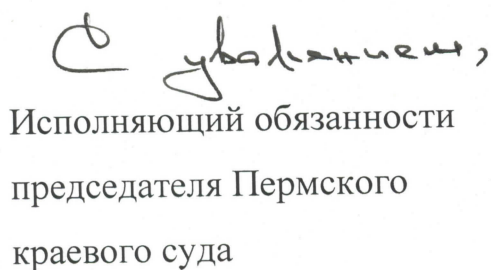 С уважением,
Исполняющий обязанности
председателя Пермского
краевого суда